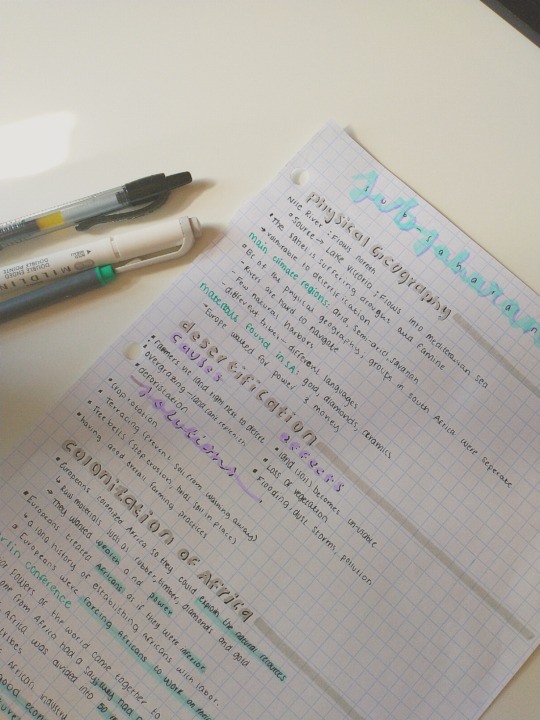 sub-saharan
physical geography
Nile River: Flows north
Source → Lake Victoria; Flows into mediterranean sea
The Sahel is suffering droughts and famine
→ vulnerable to desertification
main climate regions: arid, semi-arid, savannah
Bc of the physical geography, groups in south Africa were seperate
- Rivers are hard to navigate
- Few natural harbors
different tribes - different languages
materials found in SA: gold, diamonds, ceramics
Europe wanted for power & money
desertification
causes
farmers use land right next to desert
overgrazing - land can't replenish
deforestation
effects
land (soil) becomes unusable
Loss of vegetation
Flooding, dust storms, pollution
solutions
crop rotation
Terracing (prevent soil from washing away)
Tree belts (stop erosion, holds soil in place)
having good overall farming practices
colonization of Africa
Europeans colonized Africa so they could exploit the natural resources
↳ Real materials such as rubber, timber, diamonds and gold
→ They wanted wealth and power
Europeans treated Africans as if they were inferior
↳ a long history of establishing africans with labor.
Europeans were forcing Africans to work on their
lin conference
powers of the world came together to
one from Africa had a say
Africa was divided into 50
tribes
African industry
good econ
MILDLIN
DOUBLE ENDED
DOUBLE POINTE